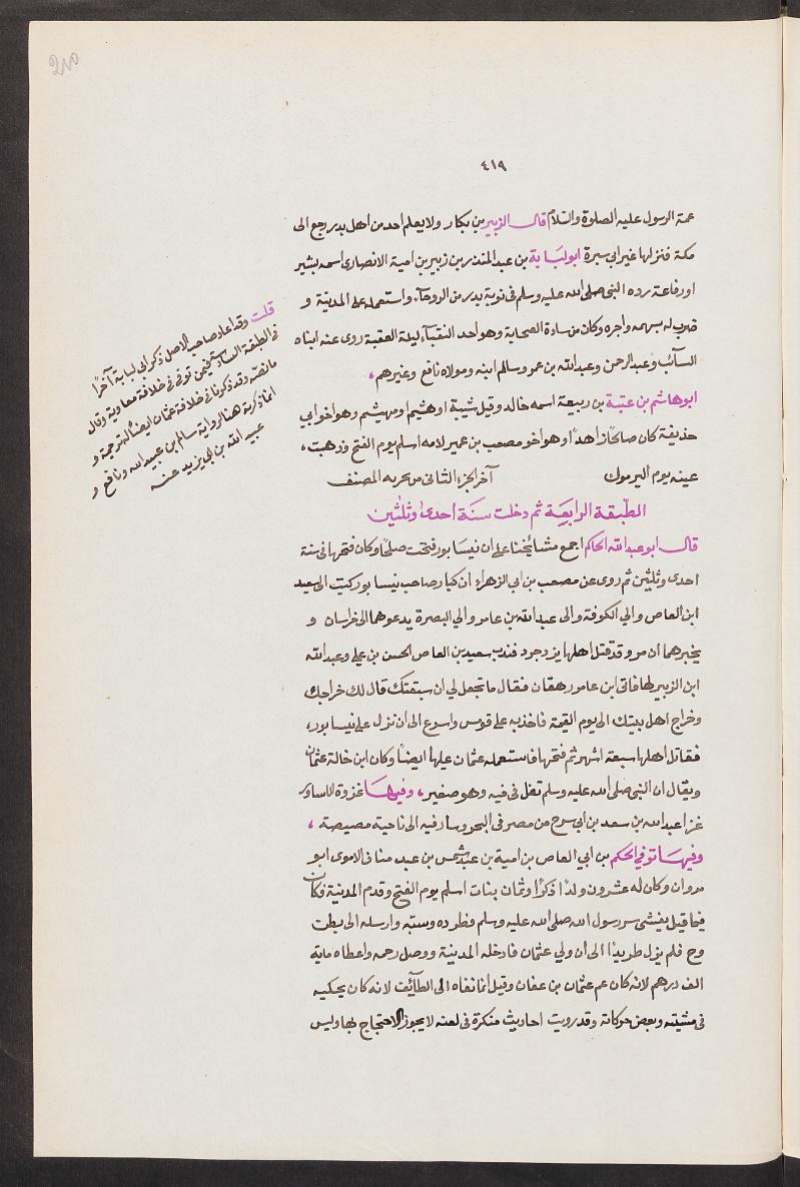 210
٤١٩
عمة الرسول عليه الصلوة والسلام قال الزبير بن بكار ولا يعلم احد من اهل بدر رجع الى
مكة فنزلها غير ابى سبرة ابو لبابة بن عبد المنذر بن زبير بن امية الانصارى اسمه بشير
او رفاعة رده النبى صلى الله عليه وسلم فى نوبة بدر من الروحآء واستعمله على المدينة و
ضرب له بسهمه واجره وكان من سادة الصحابة وهو احد النقبآء ليلة العقبة روى عنه ابناه
السآئب وعبد الرحمن وعبد الله بن عمر وسالم ابنه ومولاه نافع وغيرهم ،
ابو هاشم بن عتبة بن ربيعة اسمه خالد وقيل شيبة او هشيم او مهشم وهو اخو ابي
حذيفة كان صالحًا زاهدًا وهو اخو مصعب بن عمير لامه اسلم يوم الفتح وذهبت ،
عينه يوم اليرموك آخر الجزء الثانى من تحريه المصنف
الطبقة الرابعة ثم دخلت سنة احدى وثلثين
قال ابو عبد الله الحاكم اجمع مشائخنا على ان نيسابور فتحت صلحًا وكان فتحها فى سنة
احدى وثلثين ثم روى عن مصعب بن ابى الزهراء ان كنار صاحب نيسابور كتب الى سعيد
ابن العاص والي الكوفة والى عبد الله بن عامر والي البصرة يدعوهما الى خراسان و
يخبرهما ان مرو قد قتل اهلها يزدجرد فندب سعيد بن العاص الحسن بن علي وعبد الله
ابن الزبير لها فاتى ابن عامر دهقان فقال ما تجعل لي ان سبقتك قال لك خراجك
وخراج اهل بيتك الى يوم القيمة فاخذ به على قومس واسرع الى ان نزل على نيسابور ،
فقاتل اهلها سبعة اشهر ثم فتحها فاستعمله عثمان عليها ايضًا وكان ابن خالة عثمان
ويقال ان النبى صلى الله عليه وسلم تفل فى فيه وهو صغير ، وفيها غزوة الاساود
غزا عبد الله بن سعد بن ابى سرح من مصر فى البحر وسار فيه الى ناحية مصيصة ،
وفيها توفي الحكم بن ابي العاص بن امية بن عبد شمس بن عبد مناف الاموى ابو
مروان وكان له عشرون ولدًا ذكرًا وثمان بنات اسلم يوم الفتح وقدم المدينة فكان
فيما قيل يفشى سر رسول الله صلى الله عليه وسلم فطرده وسبّه وارسله الى بطن
وج فلم يزل طريدًا الى ان ولي عثمان فادخله المدينة ووصل رحمه واعطاه ماية
الف درهم لانه كان عم عثمان بن عفان وقيل انما نفاه الى الطآئف لانه كان يحكيه
فى مشيته وبعض حركاته وقد رويت احاديث منكرة فى لعنه لا يجوز الاحتجاج بها وليس
قلت وقد اعاد صاحب الاصل ذكر ابى لبابة آخرًا
فى الطبقة السادسة فيمن توفى فى خلافة معاوية وقال
ما نصه وقد ذكرنا فى خلافة عثمان ايضًا له ترجمة و
انما ذكرته هنا لرواية سالم بن عبيد الله ونافع و
عبيد الله بن ابى يزيد عنه